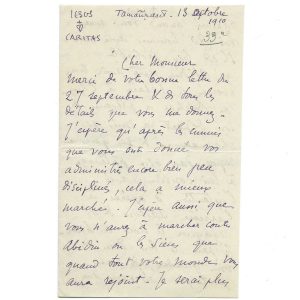 IESUS
CARITAS
Tamanrasset. 13 Octobre
1910
Cher Monsieur
merci de votre bonne lettre du
27 septembre & de tous les
détails que vous me donnez.
J'espère qu'après les ennuis
que vous ont donné vos
administrés encore bien peu
disciplinés, cela a mieux
marché. J'espère aussi que
vous n'aurez à marcher contre
Abidin ou les siens que
quand tout votre monde vous
aura rejoint. Je serai plus